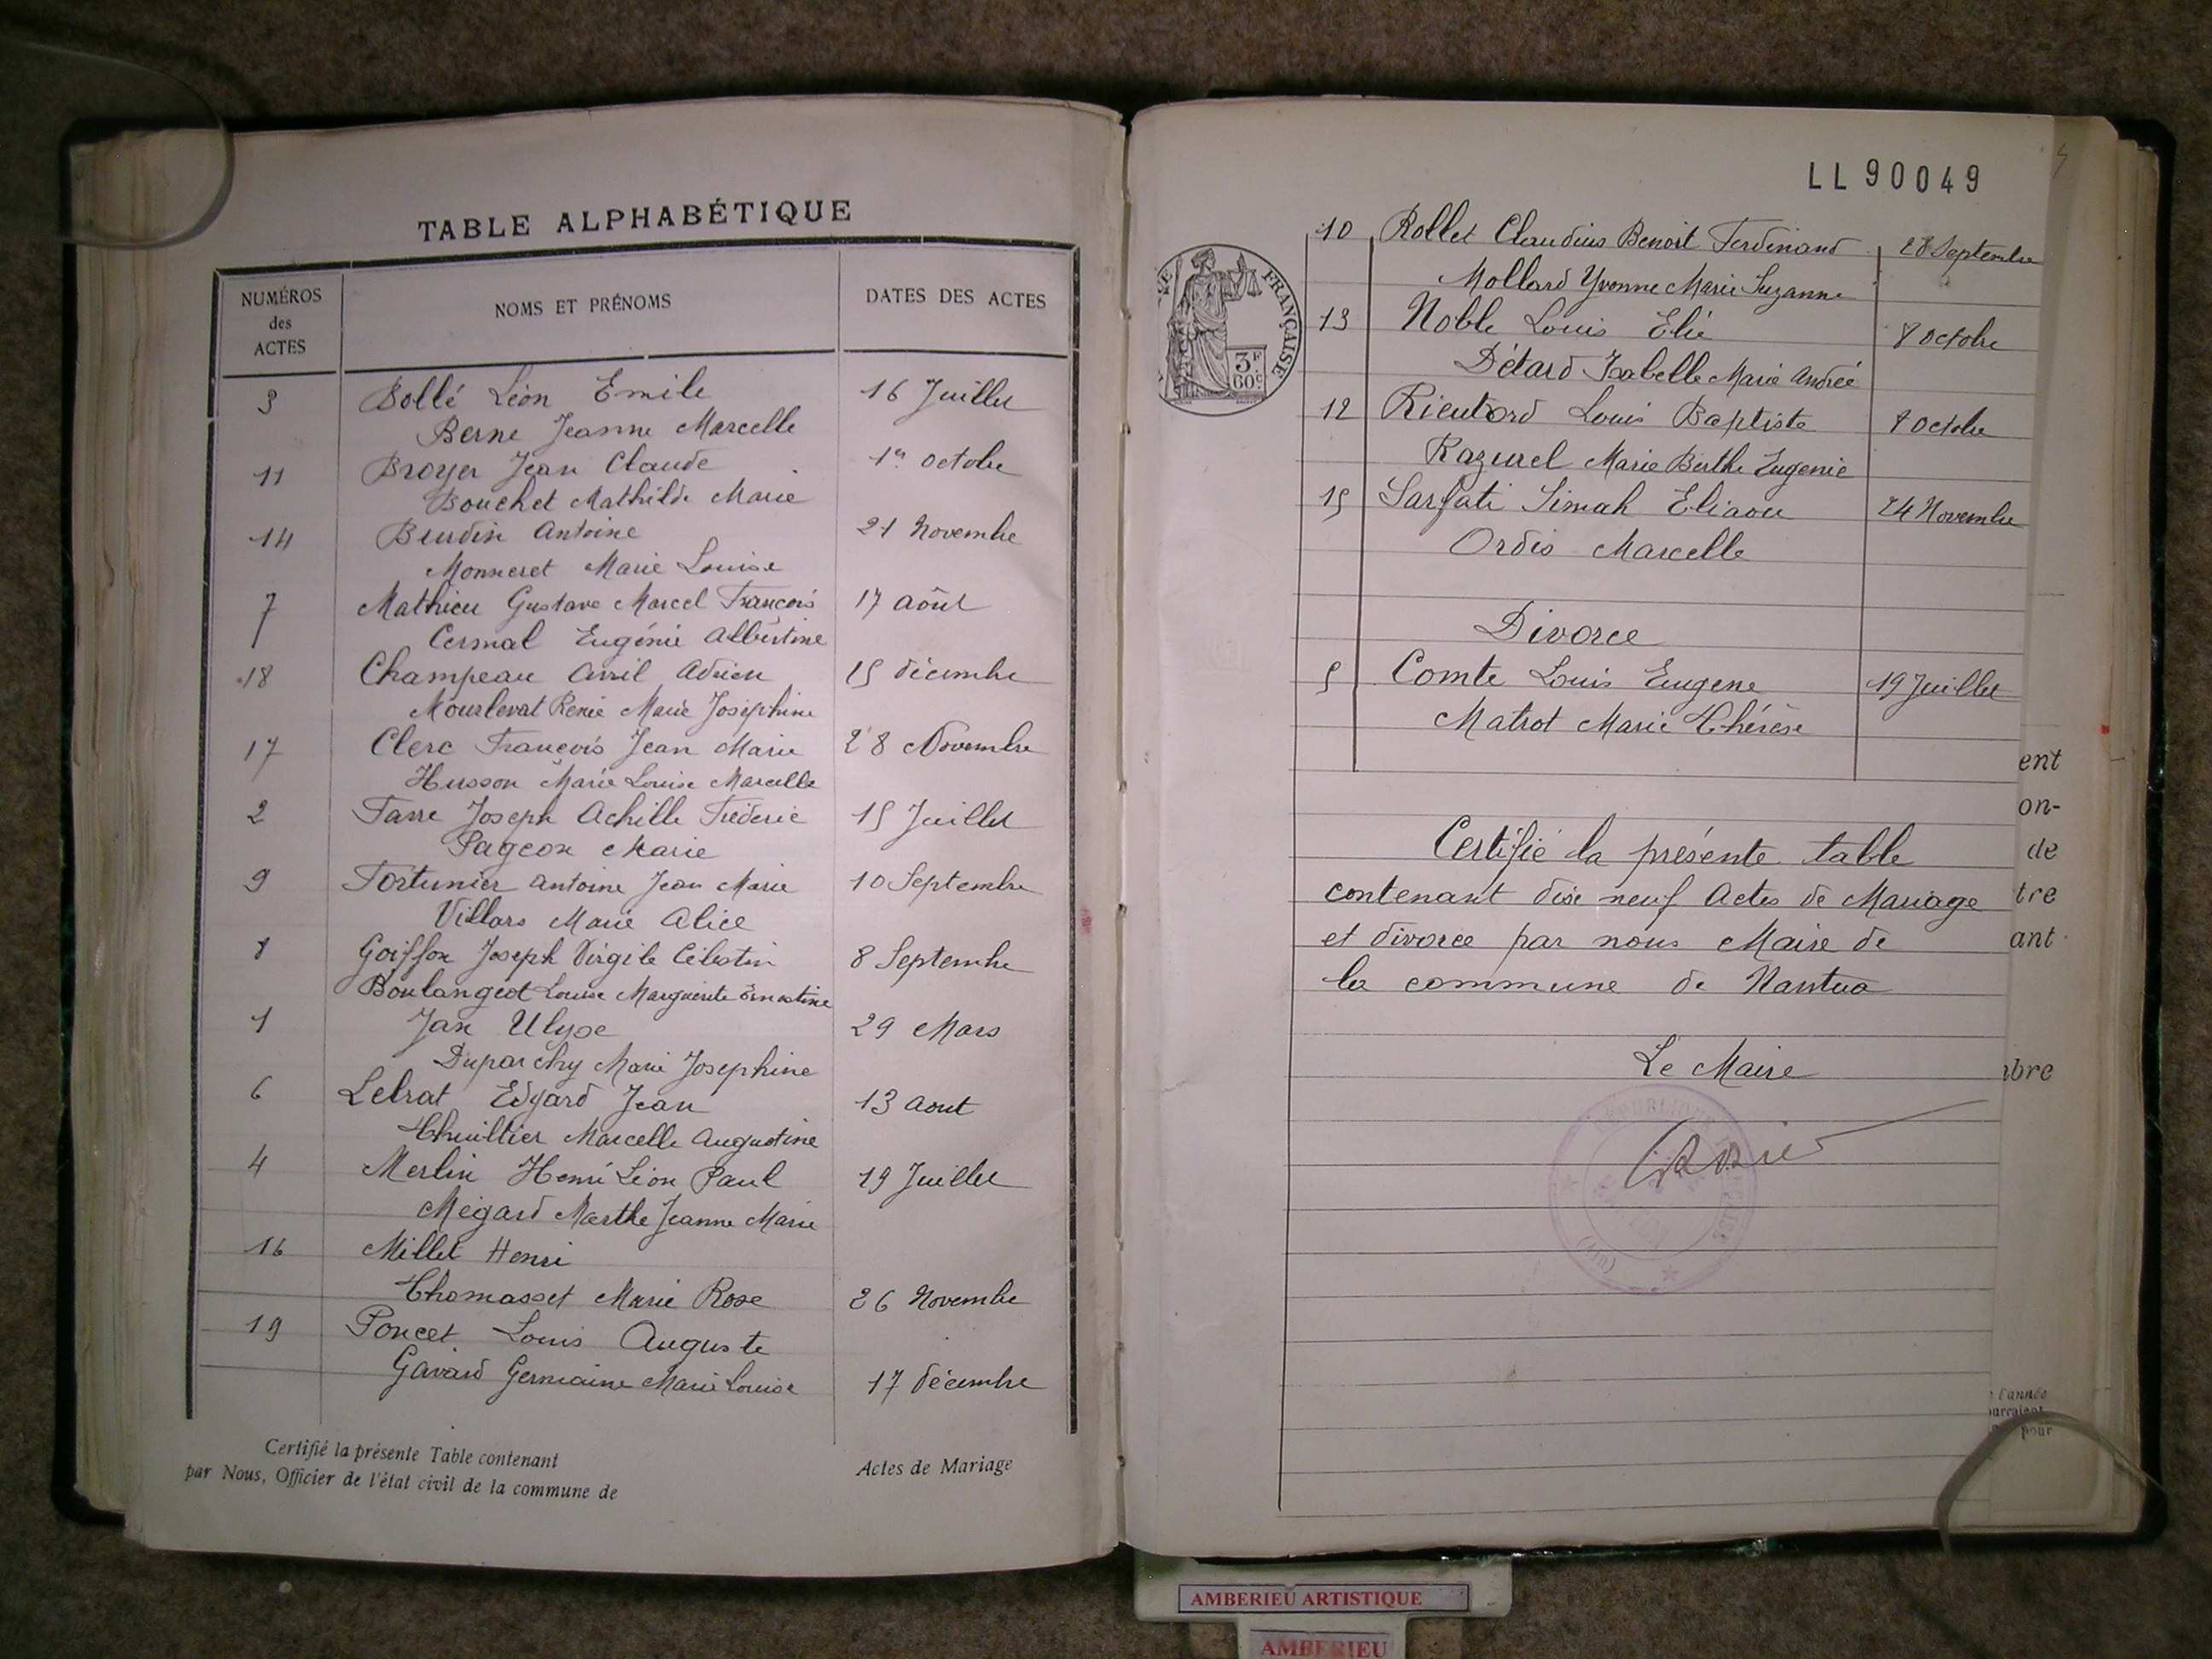 TABLE ALPHABÉTIQUE
NUMÉROS
des
ACTES
NOMS ET PRÉNOMS
DATES DES ACTES
3 Bollé Léon Emile 16 Juillet
Berne Jeanne Marcelle
11 Broyer Jean Claude 1er octobre
Bouchet Mathilde Marie
14 Beudin Antoine 21 Novembre
Monneret Marie Louise
7 Mathieu Gustave Marcel François 17 août
Cermal Eugénie Albertine
18 Champeau Avril Adrien 15 décembre
Mourlevat Renée Marie Joséphine
17 Clerc François Jean Marie 28 Novembre
Husson Marie Louise Marcelle
2 Favre Joseph Achille Fréderic 15 Juillet
Pageon Marie
9 Fortunier Antoine Jean Marie 10 Septembre
Villars Marie Alice
8 Goiffon Joseph Virgile Célestin 8 Septembre
Boulangeot Louise Marguerite Ernestine
1 Jan Ulyse 29 Mars
Duparchy Marie Josephine
6 Lebrat Edgard Jean 13 Aout
Thuillier Marcelle Augustine
4 Merlin Henri Léon Paul 19 Juillet
Mégard Marthe Jeanne Marie
16 Millet Henri
Thomasset Marie Rose 26 Novembre
19 Poncet Louis Auguste
Gavard Germaine Marie Louise 17 décembre
Certifié la présente Table contenant Actes de Mariage
par Nous, Officier de l'état civil de la commune de
LL 90049
FRANÇAISE
3F
60c
10 Rollet Claudius Benoit Ferdinand 28 Septembre
Mollard Yvonne Marie Suzanne
13 Noble Louis Elie 8 octobre
Détard Isabelle Marie Andrée
12 Rieutord Louis Baptiste 8 octobre
Razurel Marie Berthe Eugenie
15 Sarfati Simah Eliaou 24 Novembre
Ordis Marcelle
Divorce
5 Comte Louis Eugene 19 Juillet
Matrot Marie Thérèse
Certifié la présente table
contenant dix neuf Actes de Mariage
et divorce par nous Maire de
la commune de Nantua
Le Maire
ent
on-
de
tre
ant
bre
l'année
pour
AMBERIEU ARTISTIQUE
AMBERIEU